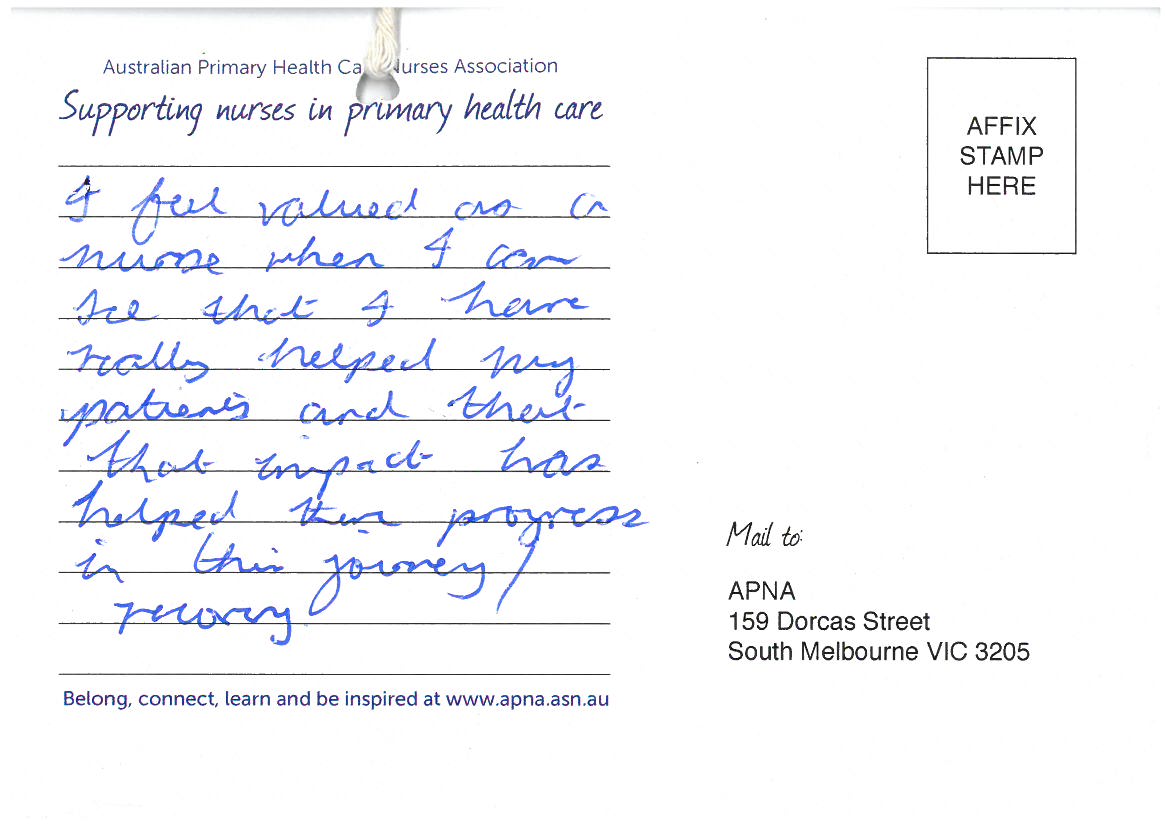 Australian Primary Health Ca Nurses Association
Supporting nurses in primary health care
I feel valued as a
nurse when I can
see that I have
really helped my
patients and that
that impact has
helped them progress
in this journey /
recovery
Belong, connect, learn and be inspired at www.apna.asn.au
AFFIX
STAMP
HERE
Mail to:
APNA
159 Dorcas Street
South Melbourne VIC 3205